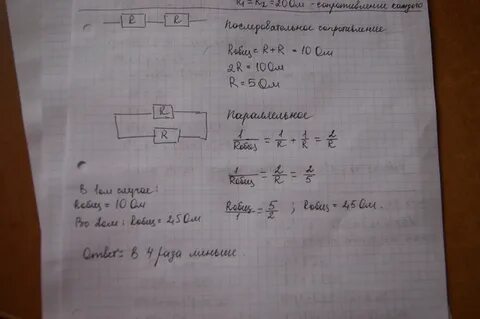 R₁ = R₂ = 20 Ом - сопротивление каждого
R R
Последовательное сопротивление
Rобщ = R + R = 10 Ом
2R = 10 Ом
R = 5 Ом
R
R
Параллельное
1/Rобщ = 1/R + 1/R = 2/R
1/Rобщ = 2/R = 2/5
Rобщ/1 = 5/2 ; Rобщ = 2,5 Ом.
В 1ом случае:
Rобщ = 10 Ом
Во 2ом: Rобщ = 2,5 Ом
Ответ: В 4 раза меньше.